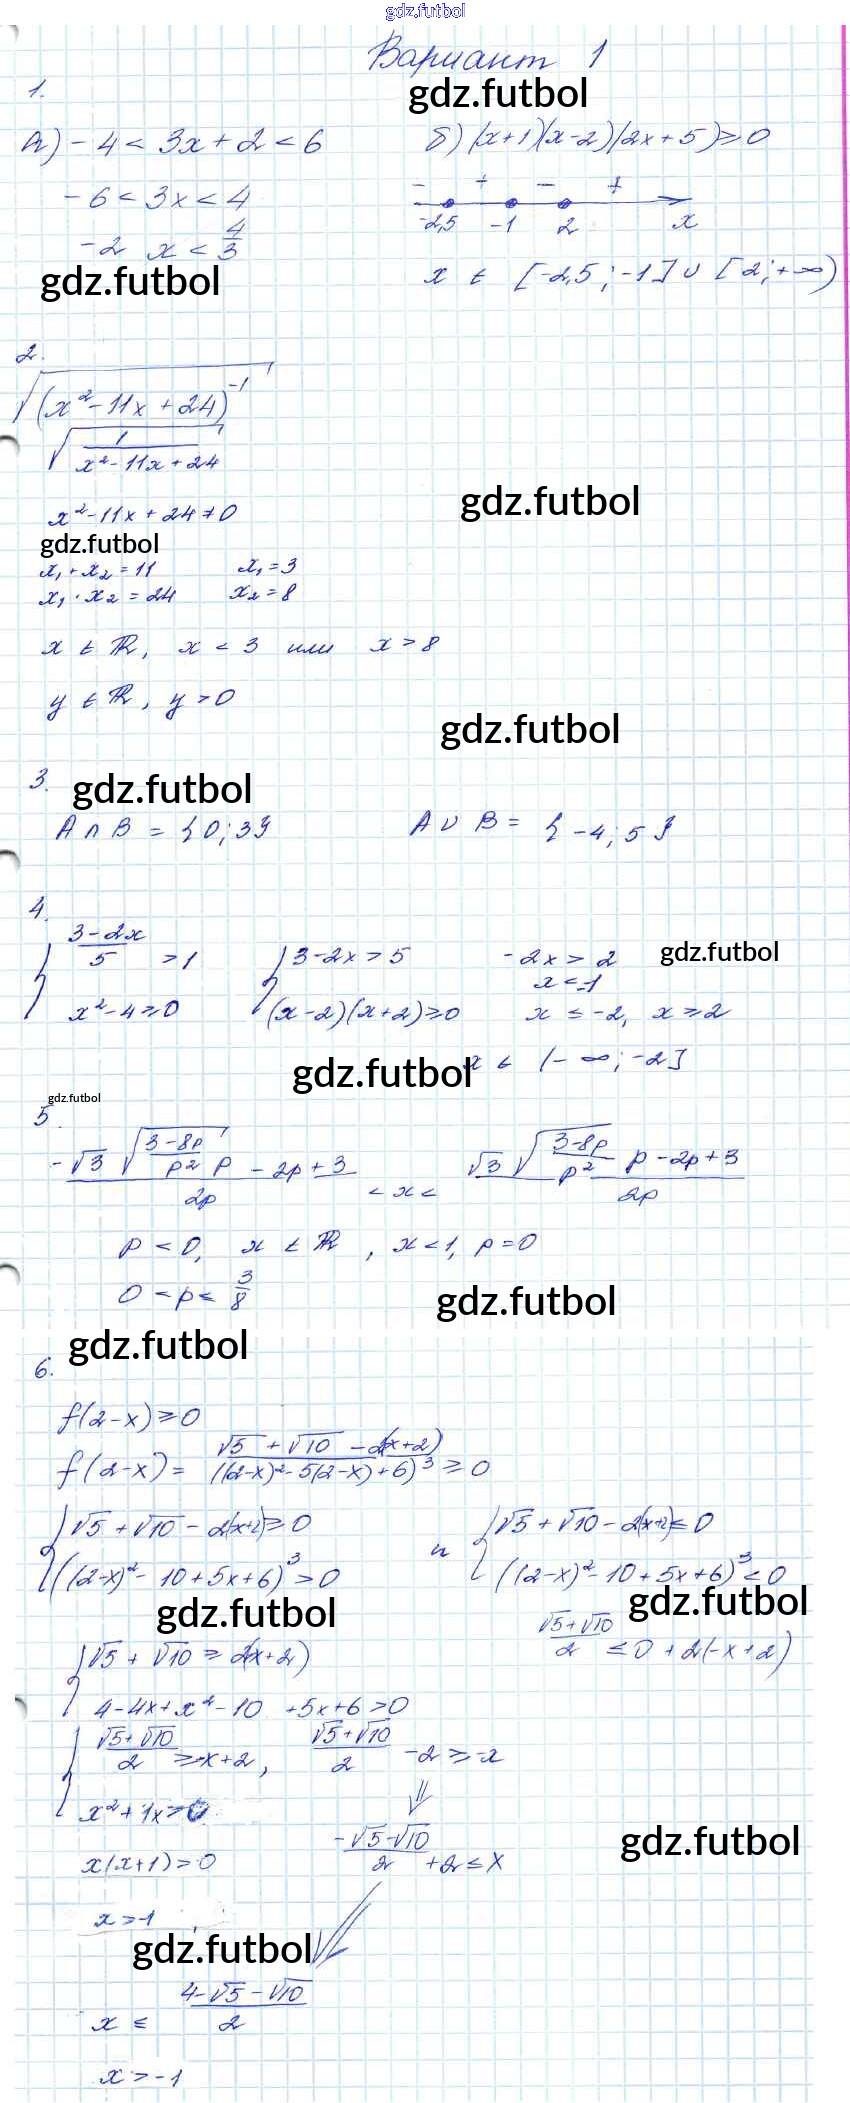 gdz.futbol
Вариант 1
gdz.futbol
1.
а) -4 < 3x + 2 < 6
-6 < 3x < 4
-2 x < 4/3
gdz.futbol
б) (x+1)(x-2)(2x+5) ≥ 0
- + - +
-2,5 -1 2 x
x ∈ [-2,5; -1] ∪ [2; +∞)
2.
√(x² - 11x + 24)⁻¹
√1/(x² - 11x + 24)
gdz.futbol
x² - 11x + 24 ≠ 0
gdz.futbol
x₁ + x₂ = 11 x₁ = 3
x₁ · x₂ = 24 x₂ = 8
x ∈ R, x < 3 или x > 8
y ∈ R, y > 0
gdz.futbol
3.
gdz.futbol
A ∩ B = {0; 3} A ∪ B = {-4; 5}
4.
{ (3-2x)/5 > 1 { 3-2x > 5 -2x > 2
gdz.futbol
x < -1
x² - 4 ≥ 0 (x-2)(x+2) ≥ 0 x ≤ -2, x ≥ 2
gdz.futbol
x ∈ (-∞; -2]
gdz.futbol
5.
(-√3 √((3-8p)/p²) p - 2p + 3)/2p < x < (√3 √((3-8p)/p²) p - 2p + 3)/2p
p < 0, x ∈ R, x < 1, p = 0
0 < p ≤ 3/8
gdz.futbol
gdz.futbol
6.
f(2-x) ≥ 0
f(2-x) = (√5 + √10 - 2(x+2))/((2-x)² - 5(2-x) + 6)³ ≥ 0
{ √5 + √10 - 2(x+2) ≥ 0 и { √5 + √10 - 2(x+2) ≤ 0
((2-x)² - 10 + 5x + 6)³ > 0 ((2-x)² - 10 + 5x + 6)³ < 0
gdz.futbol
gdz.futbol
(√5+√10)/2 ≤ 0 + 2(-x+2)
{ √5 + √10 ≥ 2(x+2)
4 - 4x + x² - 10 + 5x + 6 > 0
{ (√5+√10)/2 ≥ -x + 2, (√5+√10)/2 - 2 ≥ -x
x² + 1x > 0
(-√5-√10)/2 + 2 ≤ x
gdz.futbol
x(x+1) > 0
x > -1
gdz.futbol
x ≤ (4-√5-√10)/2
x > -1